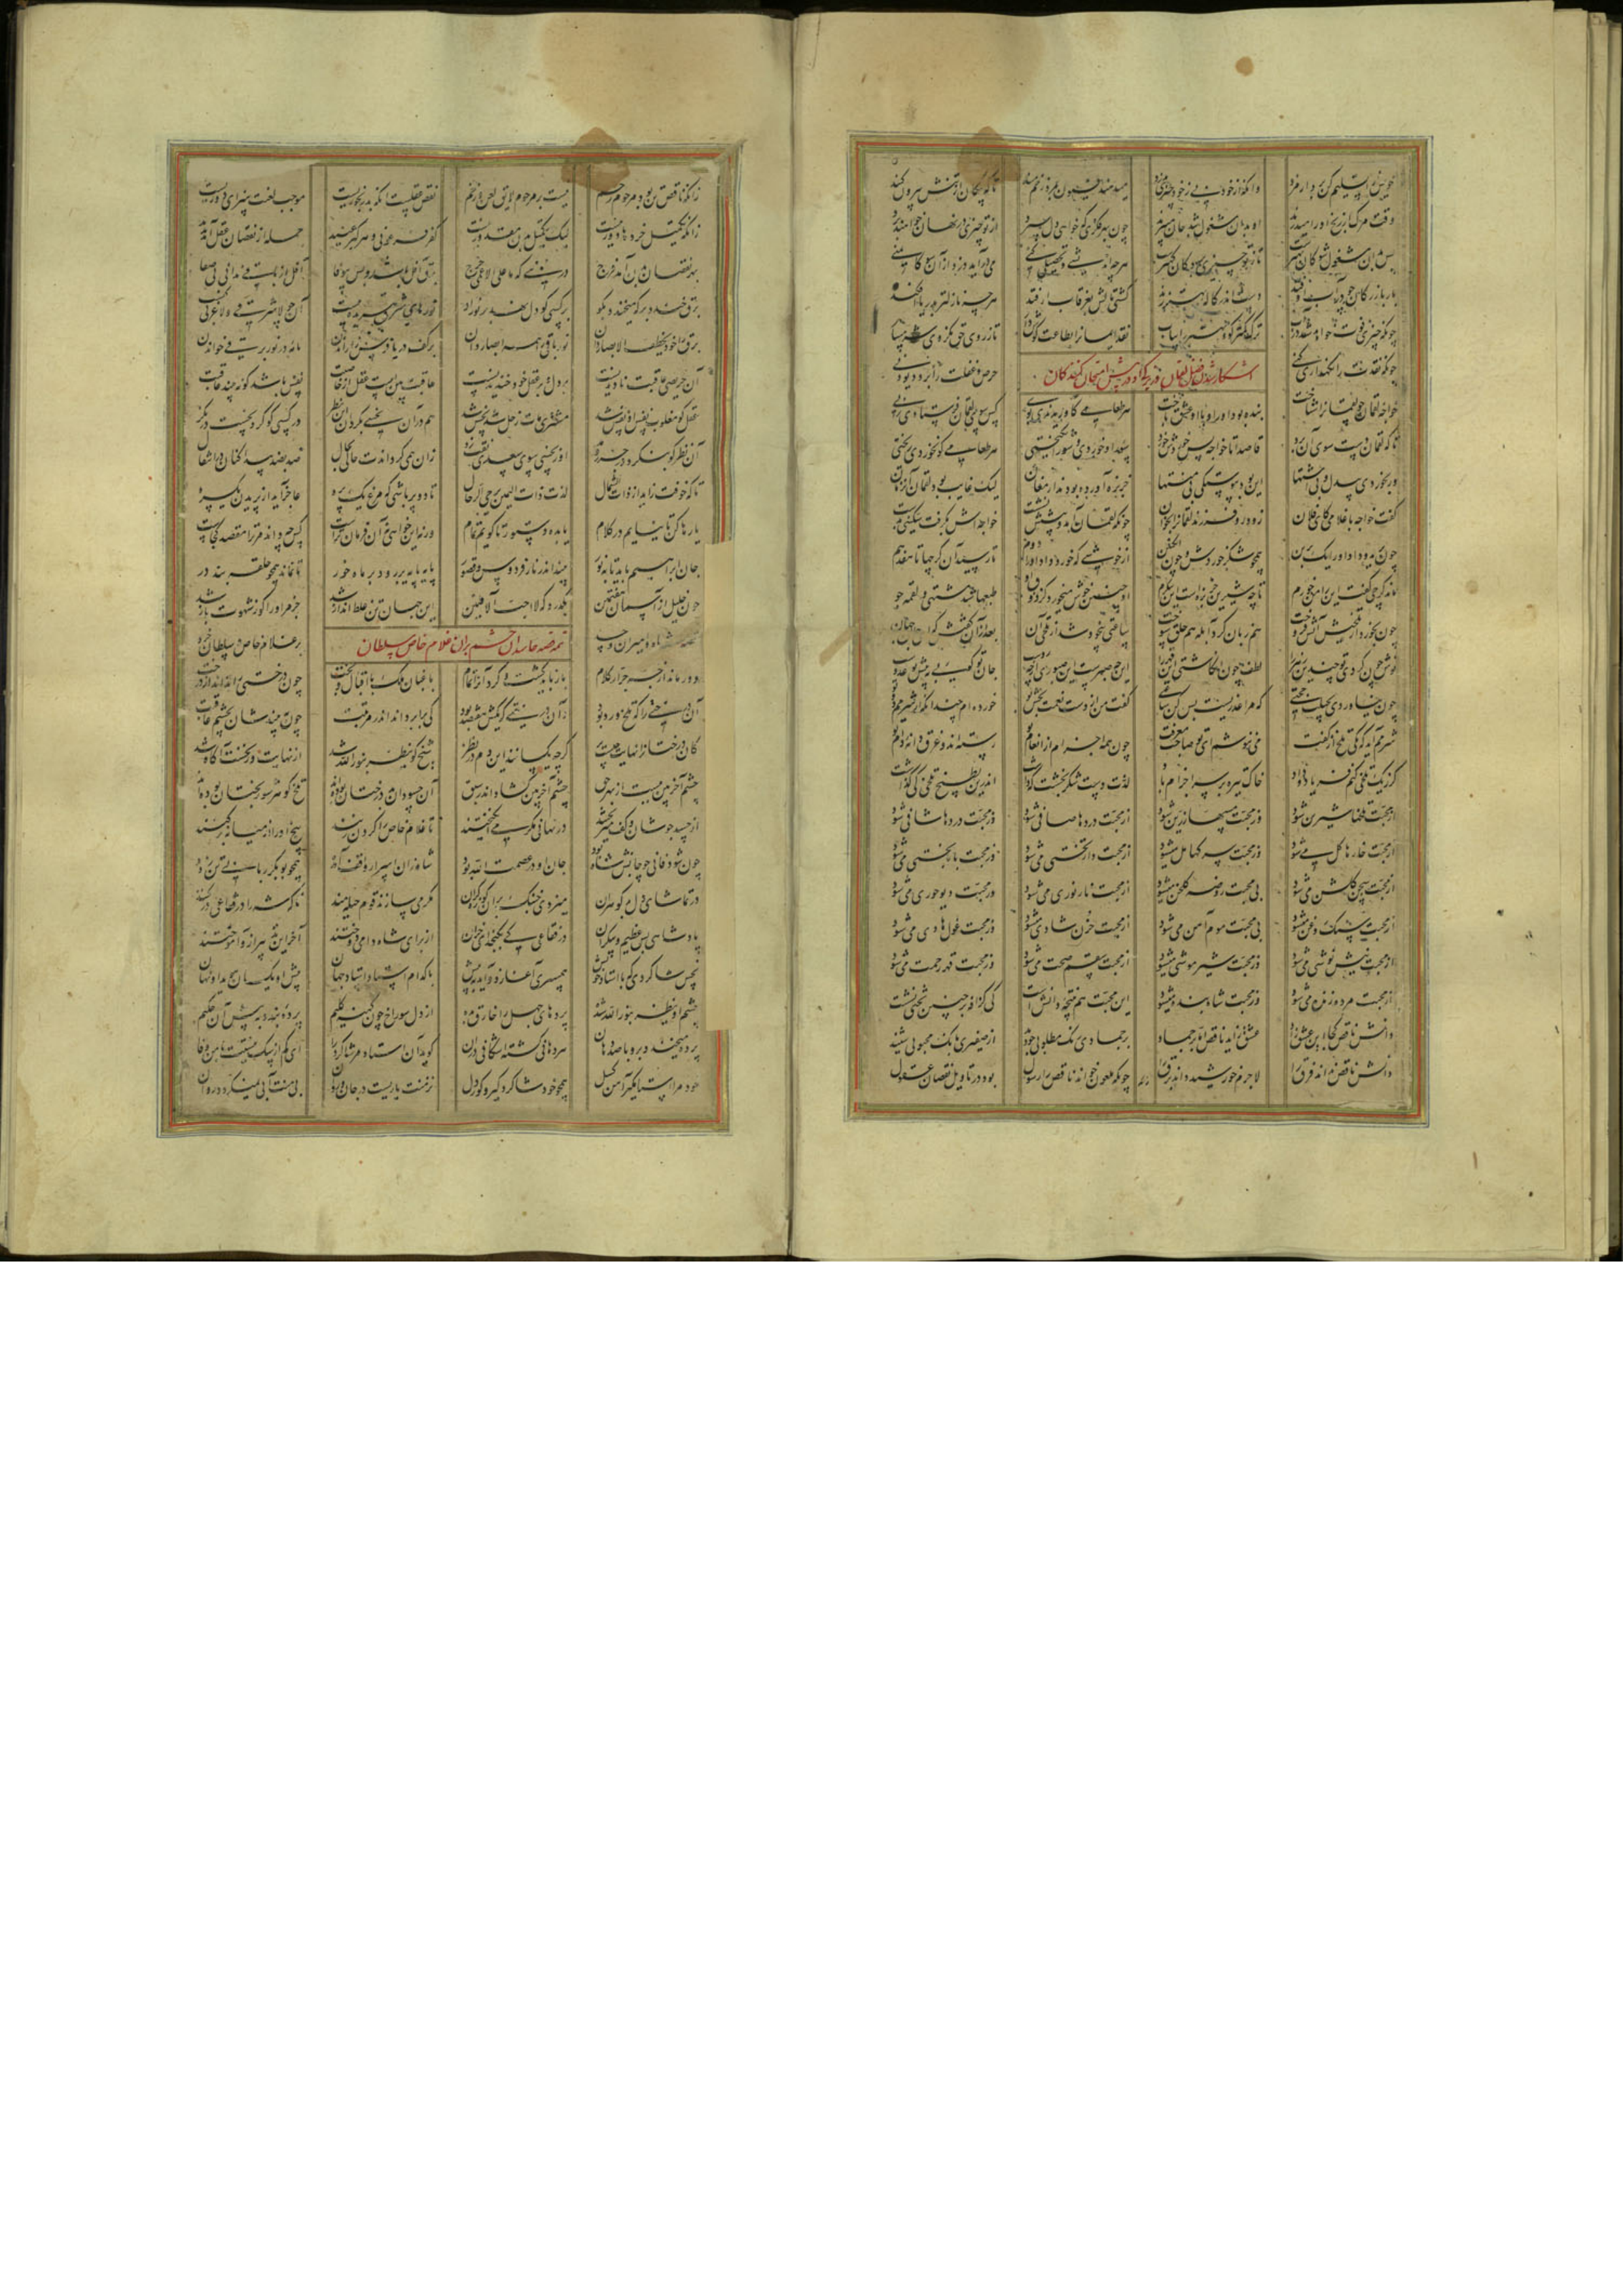 خویش را تسلیم کن بر دام مزد وانگه از خود بی ز خود چیزی بدزد میدهند افیون بمرد زخم مند تا که پیکان از تنش بیرون کنند
وقت مرگ از رنج او را میدرند او بدان مشغول شد جان میبرند چون بهر فکری که خواهی دل سپرد از تو چیزی در نهان خواهند برد
پس بدان مشغول شو کان بهترست تا ز تو چیزی برد کان کهترست هر چه اندیشی و تحصیلی کنی می درآید دزد از آن سو کایمنی
بار بازرگان چو در آب اوفتد دست اندر کاله بهتر زند کشتی مالش بغرقاب ار فتد هر چه نازلتر بدریا افکند
چونکه چیزی فوت خواهد شد در آب ترک کمتر گو و بهتر را بیاب نقد ایمان را بطاعت گوش دار تا ز روی حق نگردی شرمسار
چونکه نقدت را نگهداری کنی حرص و غفلت را برد دیو دنی
آشکار شدن فضل لقمان و زیرکی او در پیش امتحان کنندگان
خواجه لقمان چو لقمان را شناخت بنده بود او را و با او عشق باخت هر طعامی کاوریدندی بوی کس سوی لقمان فرستادی ز پی
تا که لقمان دست سوی آن برد قاصدا تا خواجه پس خوردش خورد سؤر او خوردی و شور انگیختی هر طعامی کو نخوردی ریختی
ور بخوردی بی دل و بی اشتها این بود پیوستگی بی منتها خربزه آورده بودند ارمغان لیک غایب بود لقمان آن زمان
گفت خواجه با غلامی کای فلان زود رو فرزند لقمان را بخوان چونکه لقمان آمد و پیشش نشست خواجه اش بگرفت سکینی بدست
چون برید و داد او را یک برین همچو شکر خوردش و چون انگبین از خوشی که خورد داد او را دوم تا رسید آن کرچها تا هفدهم
ماند کرچی گفت این را من خورم تا چه شیرین خربزه است این بنگرم او چنین خوش میخورد کز ذوق او طبعها شد مشتهی و لقمه جو
چون بخورد از تلخیش آتش فروخت هم زبان کرد آبله هم حلق سوخت ساعتی بیخود شد از تلخی آن بعد از آن گفتش که ای جان جهان
نوش چون کردی تو چندین زهر را لطف چون انگاشتی این قهر را این چه صبرست این صبوری از چه روست جان تو گویی به پیش تو عدوست
چون نیاوردی بحیلت حجتی که مرا عذریست بس کن ساعتی گفت من از دست نعمت بخش تو خورده ام چندان که از شرمم دوتو
شرمم آمد که یکی تلخ از کفت می ننوشم ای تو صاحب معرفت چون همه اجزام از انعام تو رسته اند و غرق دانه و دام تو
گر ز یک تلخی کنم فریاد و داد خاک تیره بر سر اجزام باد لذت دست شکر بخشت که داشت اندرین بطیخ تلخی کی گذاشت
از محبت تلخها شیرین شود وز محبت مسها زرین شود از محبت دردها صافی شود وز محبت دردها شافی شود
از محبت خارها گل می شود وز محبت سرکها مل میشود از محبت دار تختی می شود وز محبت بار بختی می شود
از محبت سجن گلشن می شود بی محبت روضه گلخن میشود از محبت نار نوری می شود وز محبت دیو حوری می شود
از محبت سنگ روغن شود بی محبت موم آهن می شود از محبت حزن شادی می شود وز محبت غول هادی می شود
از محبت نیش نوشی می شود وز محبت شیر موشی میشود از محبت سقم صحت می شود وز محبت قهر رحمت می شود
از محبت مرده زنده می شود وز محبت شاه بنده میشود این محبت هم نتیجه دانش است کی گزافه بر چنین تختی نشست
دانش ناقص کجا این عشق زاد عشق زاید ناقص اما بر جماد بر جمادی رنگ مطلوبی چو دید از صفیری بانگ محبوبی شنید
دانش ناقص نداند فرق را لاجرم خورشید داند برق را چونکه ملعون خواند ناقص را رسول بود در تاویل نقصان عقول
زانکه ناقص تن بود مرحوم رحم نیست بر مرحوم لایق لعن و زخم نقص عقلست آنکه بد رنجوریست موجب لعنت سزای دوریست
زانکه تکمیل خردها دور نیست لیک تکمیل بدن مقدور نیست کفر فرعونی و هر گبر عنید جمله از نقصان عقل آمد پدید
بهر نقصان بدن آمد فرج در نبی که ما علی الاعمی حرج برق آفل باشد و بس بی وفا آفل از باقی ندانی بی صفا
برق خندد بر که میخندد بگو بر کسی کو دل نهد بر نور او نورهای برق ببریده پیست آن چو لا شرقی و لا غربی کیست
برق را خو یخطف الابصار دان نور باقی را همه ابصار دان بر کف دریا فرس را راندن نامه در نور برقی خواندن
از حریصی عاقبت نادیدنست بر دل و بر عقل خود خندیدنست عاقبت بین است عقل از خاصیت نفس باشد کو نبیند عاقبت
عقل کو مغلوب نفس او نفس شد مشتری مات زحل شد نحس شد هم در آن نحسی بگردان این نظر در کسی کو کرد نحست در نگر
آن نظر کو بنگرد در جر و مد او ز نحسی سوی سعدی نقب زد زان همی گرداندت حالی بحال ضد بضد پیدا کنان در انتقال
تا که خوفت زاید از ذات الشمال لذت ذات الیمین یرجی الرجال تا دو پر باشی که مرغ یک پره عاجز آید از پریدن یکسره
یا رها کن تا نیایم در کلام یا بده دستور تا گویم تمام ورنه این خواهی نه آن فرمان تراست کس چه داند مر ترا مقصد کجاست
جان ابراهیم باید تا بنور بیند اندر نار فردوس و قصور پایه پایه بر رود بر ماه و خور تا نماند همچو حلقه بند در
چون خلیل از آسمان هفتمین بگذرد که لا احب الآفلین این جهان تن غلط انداز شد جز مر او را کو ز شهوت باز شد
تتمه قصه حاسدان حشم بران غلام خاص سلطان
شاه و امیران و حسد بر غلام خاص سلطان خرد
دور ماند از جر جرار کلام باز باید گشت و کرد آنرا تمام باغبان ملک با اقبال و بخت چون درختی را نداند از درخت
آن درختی را که تلخ و رد بود و آن درختی که یکش هفصد بود کی برابر داند اندر مرتبت چون ببیندشان بچشم عاقبت
کان درختان را نهایت چیست بر گرچه یکسانند این دم در نظر شیخ کو ینظر بنور الله شد از نهایت وز نخست آگاه شد
چشم آخربین ببست از بهر حق چشم آخربین گشاد اندر سبق آن حسودان بد درختان بوده اند تلخ گوهر شوربختان بوده اند
از حسد جوشان و کف میریختند در نهانی مکر می انگیختند تا غلام خاص را گردن زنند بیخ او را از میانه برکنند
چون شود فانی چو جانش شاه بود جان او در عصمت الله بود شاه از آن اسرار واقف آمده همچو بوبکر ربابی تن زده
در تماشای دل بد گوهران میزدی خنبک بر آن کوزه گران مکر می سازند قوم حیله مند تا که شه را در فقاعی درکنند
پادشاهی بس عظیم و بیکران در فقاعی کی بگنجد ای خران از برای شاه دامی دوختند آخر این تدبیر از او آموختند
نحس شاگردی که با استاد خویش همسری آغازد و آید به پیش با کدام استاد استاد جهان پیش او یکسان هویدا و نهان
چشم او ینظر بنور الله شده پردهای جهل را خارق شده از دل سوراخ چون کهنه گلیم پرده بندد به پیش آن حکیم
پرده میخندد برو با صد دهان هر دهانی گشته اشکافی در آن گوید آن استاد مر شاگرد را ای کم از سگ نیستت با من وفا
خود مرا استا مگیر آهن گسل همچو خود شاگرد گیر و کوردل نز منت یاریست در جان و روان بی منت آبی نمیگردد روان